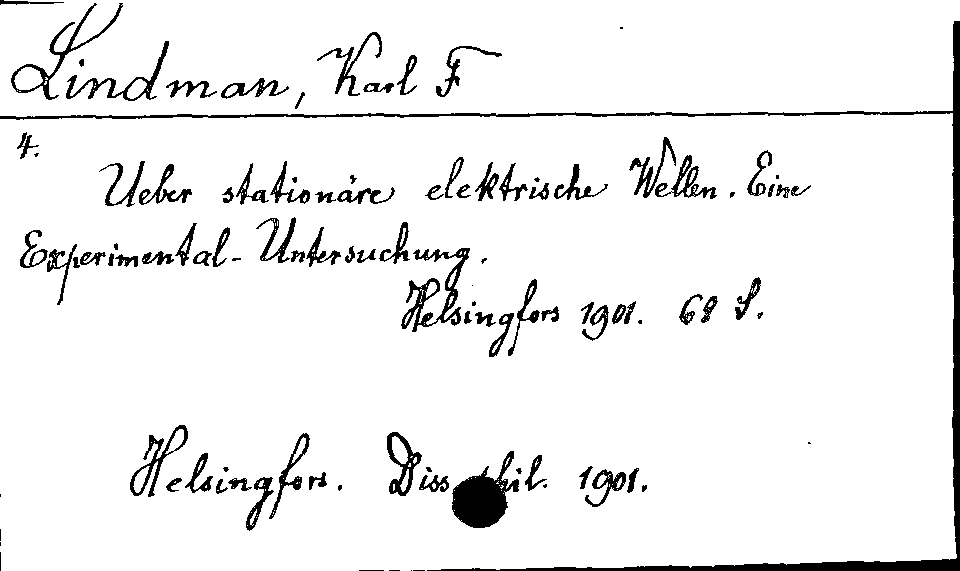 Lindman, Karl F
4.
Ueber stationäre elektrische Wellen. Eine
Experimental-Untersuchung.
Helsingfors 1901. 68 S.
Helsingfors. Diss. phil. 1901.